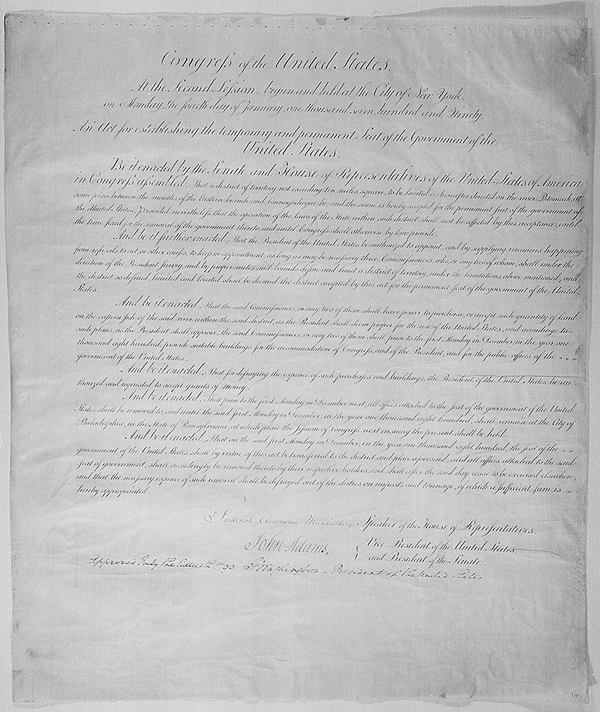 Congreſs of the United States.
At the Second Seſsion, begun and held at the City of New York,
on Monday the fourth day of January, one thousand seven hundred and Ninety
An Act for establishing the temporary and permanent Seat of the Government of the
United States.
Be it enacted by the Senate and House of Representatives of the United States of America
in Congreſs aſsembled, That a district of territory not exceeding ten miles square, to be located as hereafter directed on the river Potomack, at
some place between the mouths of the Eastern branch and Connogochegue be, and the same is hereby accepted for the permanent seat of the government of
the United States, Provided nevertheleſs that the operation of the laws of the State within such district shall not be affected by this acceptance, until
the time fixed for the removal of the government thereto, and until Congreſs shall otherwise by law provide.
And be it further enacted, That the President of the United States be authorized to appoint, and by supplying vacancies happening
from refusals to act or other causes, to keep in appointment as long as may be neceſsary three Commiſsioners, who, or any two of whom, shall, under the
direction of the President survey, and by proper metes and bounds define and limit a district of territory, under the limitations above mentioned, and
the district so defined, limited and located shall be deemed the district accepted by this act, for the permanent seat of the government of the United
States.
And be it enacted, That the said Commiſsioners, or any two of them shall have power to purchase, or accept such quantity of land
on the eastern side of the said river, within the said district, as the President shall deem proper for the use of the United States, and according to
such plans, as the President shall approve, the said Commiſsioners, or any two of them shall, prior to the first Monday in December, in the year one
thousand eight hundred, provide suitable buildings for the accommodation of Congreſs, and of the President, and for the public offices of the
government of the United States.
And be it enacted, That for defraying the expence of such purchases and buildings, the President of the United States be au-
thorized and requested to accept grants of money.
And be it enacted, That prior to the first Monday in December next, all offices attached to the seat of the government of the United
States, shall be removed to, and until the said first Monday in December, in the year one thousand eight hundred, shall remain at the City of
Philadelphia, in the State of Pennsylvania, at which place the seſsion of Congreſs next ensuing the present shall be held.
And be it enacted, That on the said first Monday in December, in the year one thousand eight hundred, the seat of the
government of the United States shall by virtue of this act, be transferred to the district and place aforesaid, and all offices attached to the said
seat of government, shall accordingly be removed thereto by their respective holders, and shall, after the said day, cease to be exercised elsewhere,
and that the neceſsary expence of such removal shall be defrayed out of the duties on imposts and tonnage, of which a sufficient sum is
hereby appropriated.
Frederick Augustus Muhlenberg Speaker of the House of Representatives.
John Adams, Vice President of the United States,
and President of the Senate
Approved July the sixteenth 1790 G Washington - President of the United States